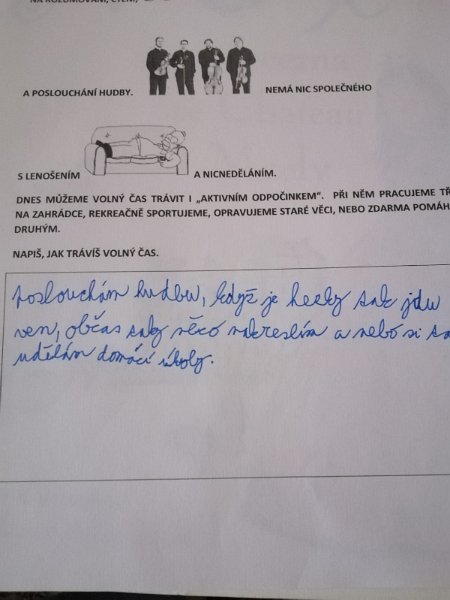 NA ROZJÍMÁNÍ, ČTENÍ,
A POSLOUCHÁNÍ HUDBY. NEMÁ NIC SPOLEČNÉHO
S LENOŠENÍM A NICNEDĚLÁNÍM.
DNES MŮŽEME VOLNÝ ČAS TRÁVIT I „AKTIVNÍM ODPOČINKEM“. PŘI NĚM PRACUJEME TŘ
NA ZAHRÁDCE, REKREAČNĚ SPORTUJEME, OPRAVUJEME STARÉ VĚCI, NEBO ZDARMA POMÁH
DRUHÝM.
NAPIŠ, JAK TRÁVÍŠ VOLNÝ ČAS.
poslouchám hudbu, když je hezky tak jdu
ven, občas taky něco nakreslím a nebo si
udělám domácí úkoly.